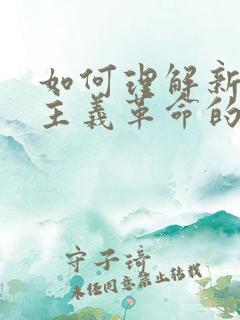 如何理解新
主义革命的
守子琦
未经同意禁止转载